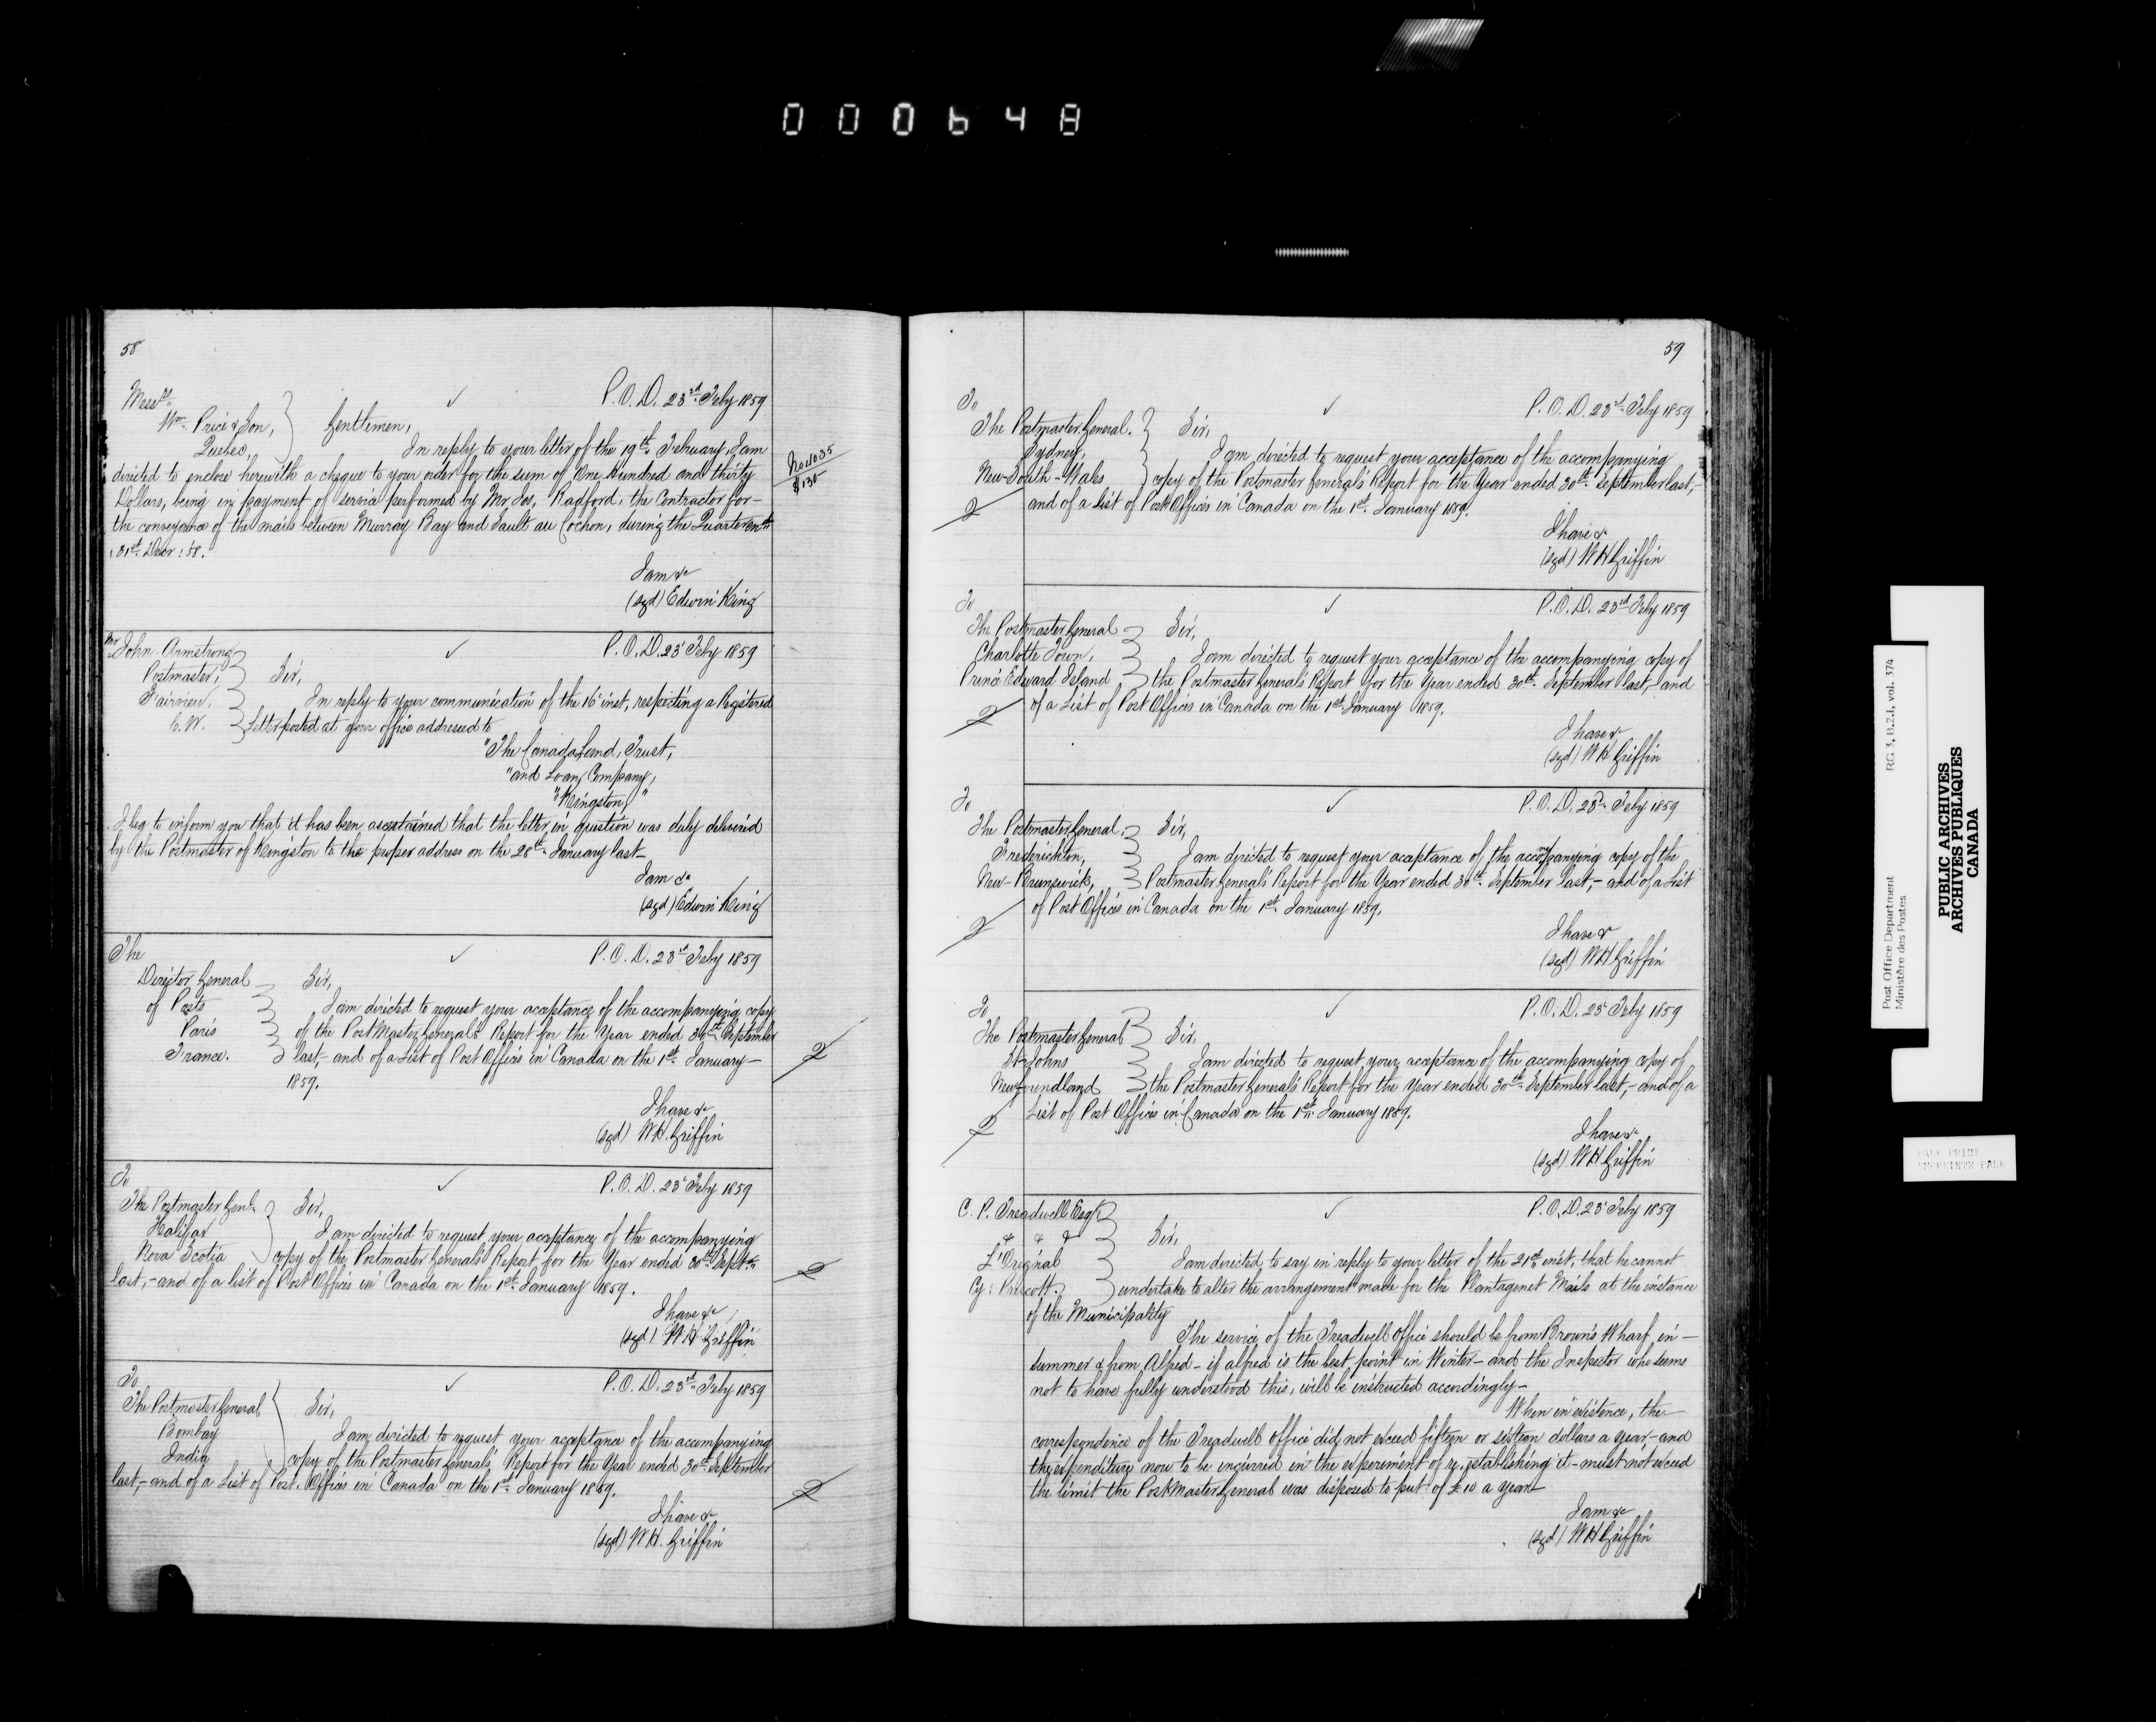 000648
58
P.O.D. 23rd Feby 1859
Messrs
Wm Price & Son,
Quebec,
Gentlemen,
In reply to your letter of the 19th February, I am
directed to enclose herewith a cheque to your order for the sum of One Hundred and thirty
Dollars, being in payment of service performed by Mr Jos. Radford, the Contractor for
the conveyance of the mails between Murray Bay and Sault au Cochon, during the Quarter
31st Decr : 58.
No 4035
$130
I am &c
(sgd) Edwin King
Mr John Armstrong
Postmaster,
Fairview,
C.W.
P.O.D. 23 Feby 1859
Sir,
In reply to your communication of the 16 inst, respecting a Registered
Letter posted at your office addressed to
"The Canada Land, Trust,
"and Loan Company,
"Kingston,"
I beg to inform you that it has been ascertained that the letter in question was duly delivered
by the Postmaster of Kingston to the proper address on the 28th January last
I am &c
(sgd) Edwin King
The
Director General
of Posts
Paris
France.
P.O.D. 23rd Feby 1859
Sir,
I am directed to request your acceptance of the accompanying copy
of the PostMaster General's Report for the Year ended 30th September
last,- and of a List of Post Offices in Canada on the 1st January
1859.
I have &c
(sgd) W.H. Griffin
To
The Postmaster Genl.
Halifax
Nova Scotia
P.O.D. 23 Feby 1859
Sir,
I am directed to request your acceptance of the accompanying
copy of the Postmaster General's Report for the Year ended 30th Septr
last,- and of a list of Post Offices in Canada on the 1st January 1859.
I have &c
(sgd) W H Griffin
To
The Postmaster General
Bombay
India
P.O.D. 23rd Feby 1859
Sir,
I am directed to request your acceptance of the accompanying
copy of the Postmaster General's Report for the Year ended 30th September
last,- and of a List of Post Offices in Canada on the 1st January 1859.
I have &c
(sgd) W H. Griffin
59
To
The Postmaster General.
Sydney,
New-South-Wales
P.O.D. 23rd Feby 1859
Sir,
I am directed to request your acceptance of the accompanying
copy of the Postmaster General's Report for the Year ended 30th September last,-
and of a List of Post Offices in Canada on the 1st January 1859.
I have &
(sgd) W H Griffin
To
The Postmaster General
Charlotte Town,
Prince Edward Island
P.O.D. 23rd Feby 1859
Sir,
I am directed to request your acceptance of the accompanying copy of
the Postmaster General's Report for the Year ended 30th September last,- and
of a List of Post Offices in Canada on the 1st January 1859.
I have &c
(sgd) W H Griffin
To
The Postmaster General,
Frederickton,
New-Brunswick,
P.O.D. 23rd Feby 1859
Sir,
I am directed to request your acceptance of the accompanying copy of the
Postmaster General's Report for the Year ended 30th September last,- and of a List
of Post Offices in Canada on the 1st January 1859.
I have &
(sgd) W H Griffin
To
The Postmaster General
St Johns
Newfoundland
P.O.D. 23 Feby 1859
Sir,
I am directed to request your acceptance of the accompanying copy of
the Postmaster General's Report for the Year ended 30th September last,- and of a
List of Post Offices in Canada on the 1st January 1859.
I have &c
(sgd) W H Griffin
C. P. Treadwell Esqr
& & &
L'Orignal
Cy: Prescott.
P.O.D. 23 Feby 1859
Sir,
I am directed to say in reply to your letter of the 21st inst, that he cannot
undertake to alter the arrangement made for the Plantagenet Mails at the instance
of the Municipality
The service of the Treadwell Office should be from Brown's Wharf, in
summer & from Alfred - if Alfred is the best point in Winter - and the Inspector who seems
not to have fully understood this, will be instructed accordingly -
When in existence, the
correspondence of the Treadwell Office did not exceed fifteen or sixteen dollars a year - and
the expenditure now to be incurred in the experiment of re-establishing it - must not exceed
the limit the PostMaster General was disposed to put of £10 a year
I am &c
(sgd) W H Griffin
Post Office Department
Ministère des Postes
RG 3, B.2.1, vol. 374
PUBLIC ARCHIVES
ARCHIVES PUBLIQUES
CANADA